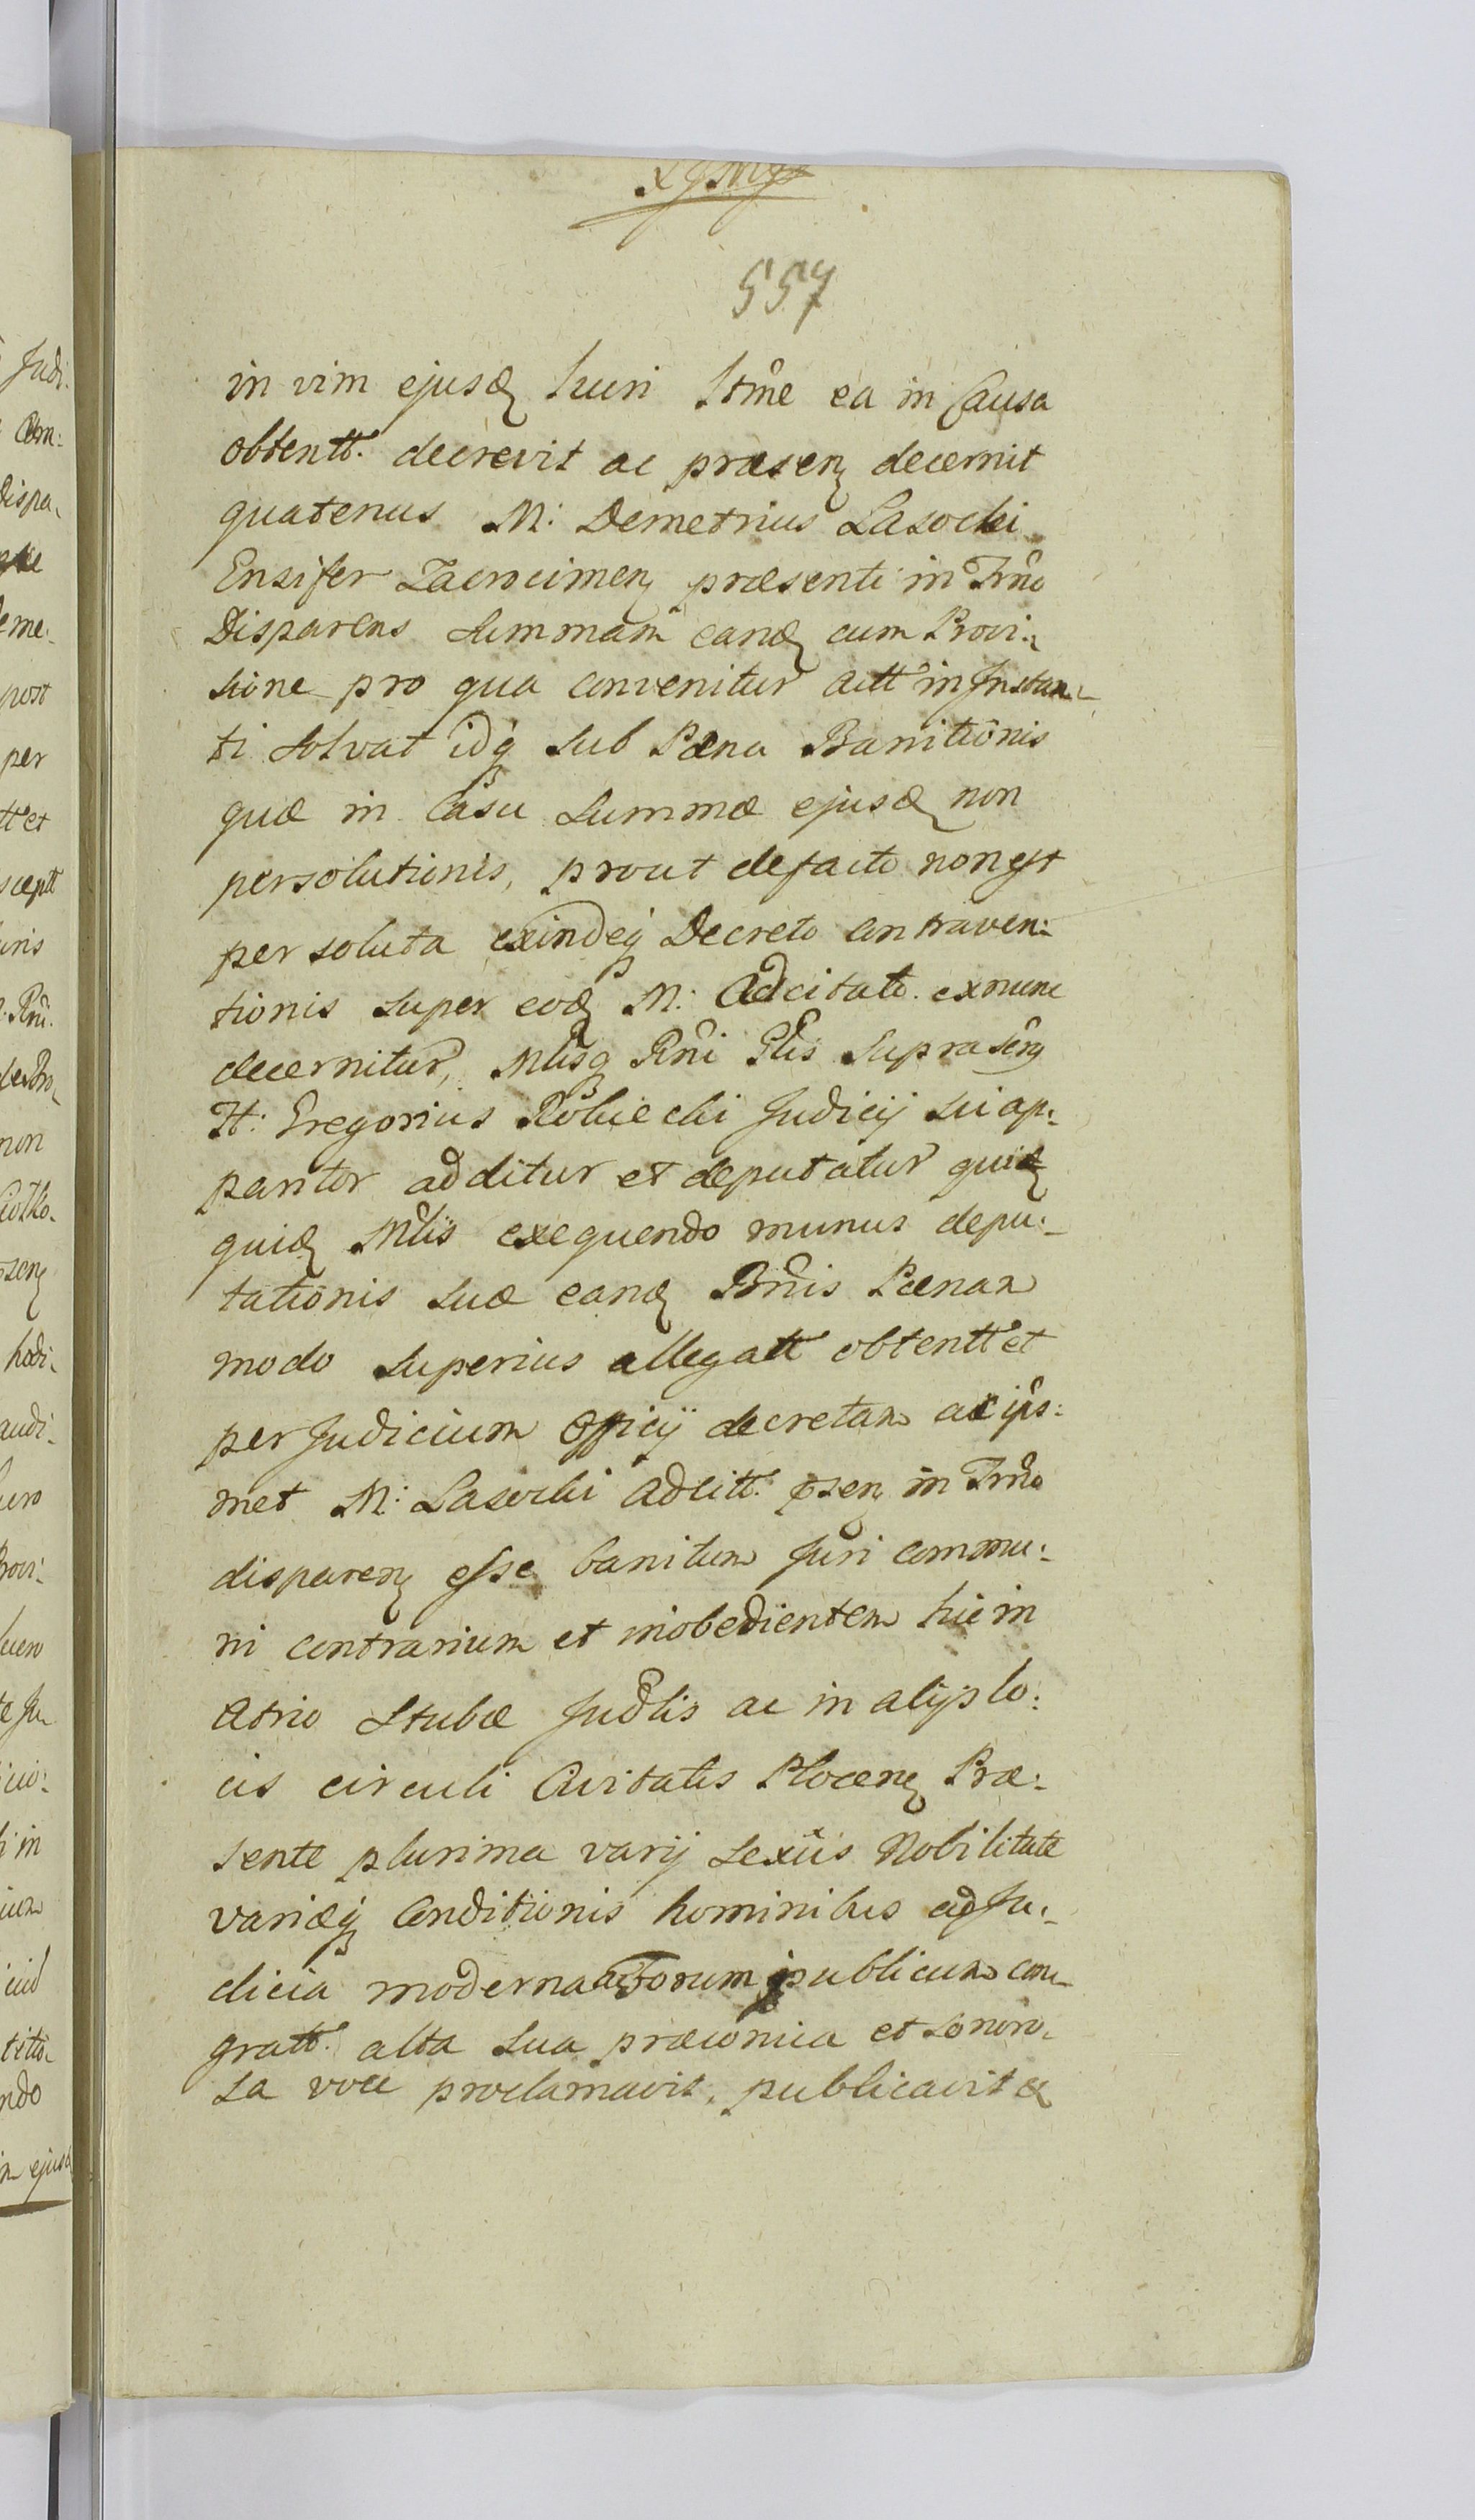 557
in vim ejusd luri Itme ea in Causa
obtentt. decrevit ac præsen decernit
quatenus M: Demetrius Lasocki
Ensifer Zacrocimen præsenti in Trno
Disparens Summam eand cum Provi:
sione pro qua convenitur actt in Instan:
ti Solvat idq Sub Pæna Banitionis
quæ in Casu Summæ ejusd non
persolutionis, prout defacto non est
persoluta exindeq Decreto Contraven:
tionis super eod M: Adcitato. exnunc
decernitur, Mlisq Rni Glis Suprascrip
H: Gregorius Robiecki Judicij Sui ap:
paritor additur et deputatur quid
quid Mlis exequendo munus depu:
tationis suæ eand Bnis Pænam
modo superius allegatt obtentt et
per Judicium Officij decretam ac ips:
met M: Lasocki Adcitt. psen in Trno
disparen esse banitum Juri commu:
ni contrarium et inobedientem hic in
Atrio Stubæ Judlis ac in alijs lo:
cis circuli Civitatis Plocen Præ:
sente plurima varij Sexus Nobilitate
variæq Conditionis hominibus ad Ju:
dicia moderna actorum publicum con
gratt. alta sua præconica et sonoro:
sa voce proclamavit, publicavit &